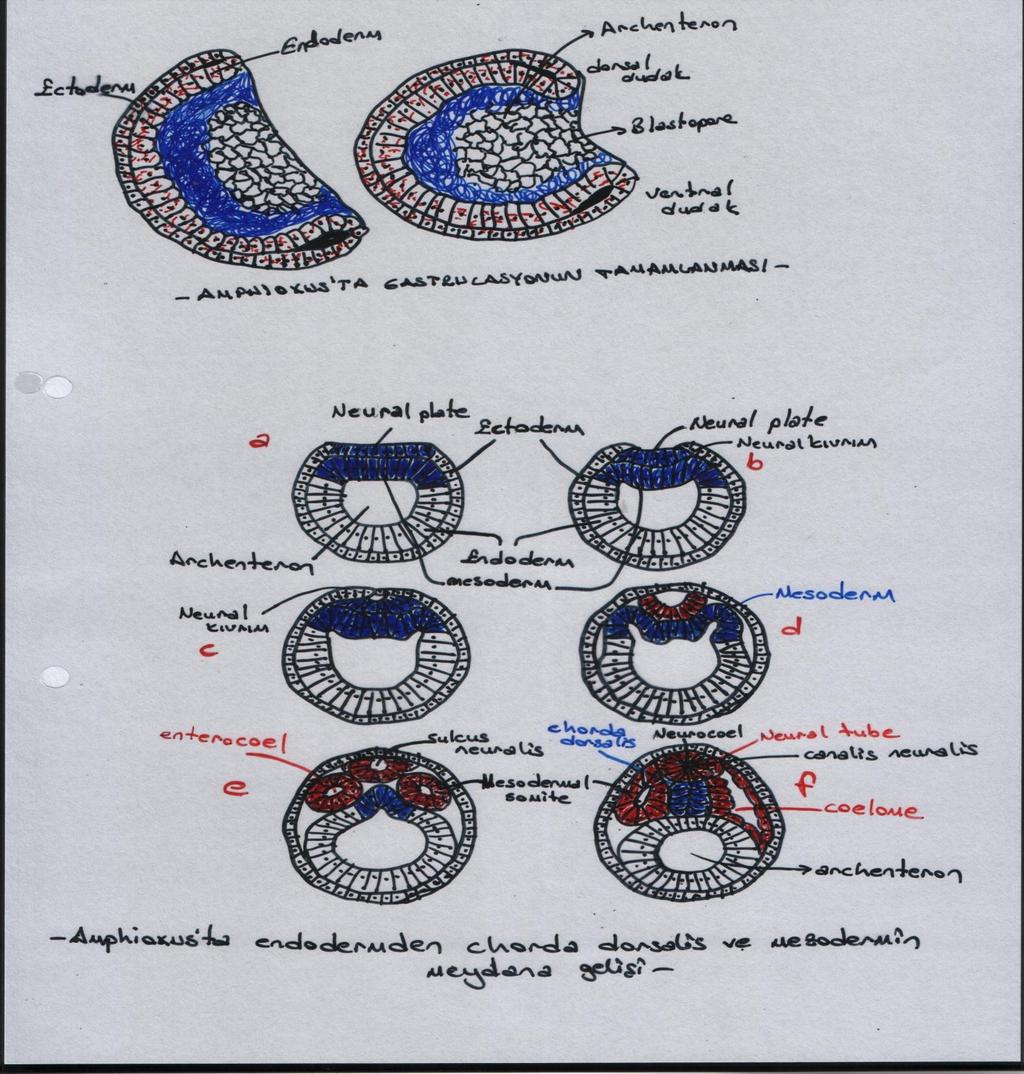 Endoderm
Ectoderm
Archenteron
dorsal
dudak
Blastopore
ventral
dudak
- AMPHIOXUS'TA GASTRULASYONUN TAMAMLANMASI -
a
Neural plate
Ectoderm
Neural plate
Neural kıvrım
b
Archenteron
Endoderm
mesoderm
Neural
kıvrım
c
Mesoderm
d
enterocoel
sulcus
neuralis
e
Mesodermal
somite
chorda
dorsalis
Neurocoel
Neural tube
canalis neuralis
f
coelome
archenteron
- Amphioxus'ta endodermden chorda dorsalis ve mesodermin
meydana gelişi -